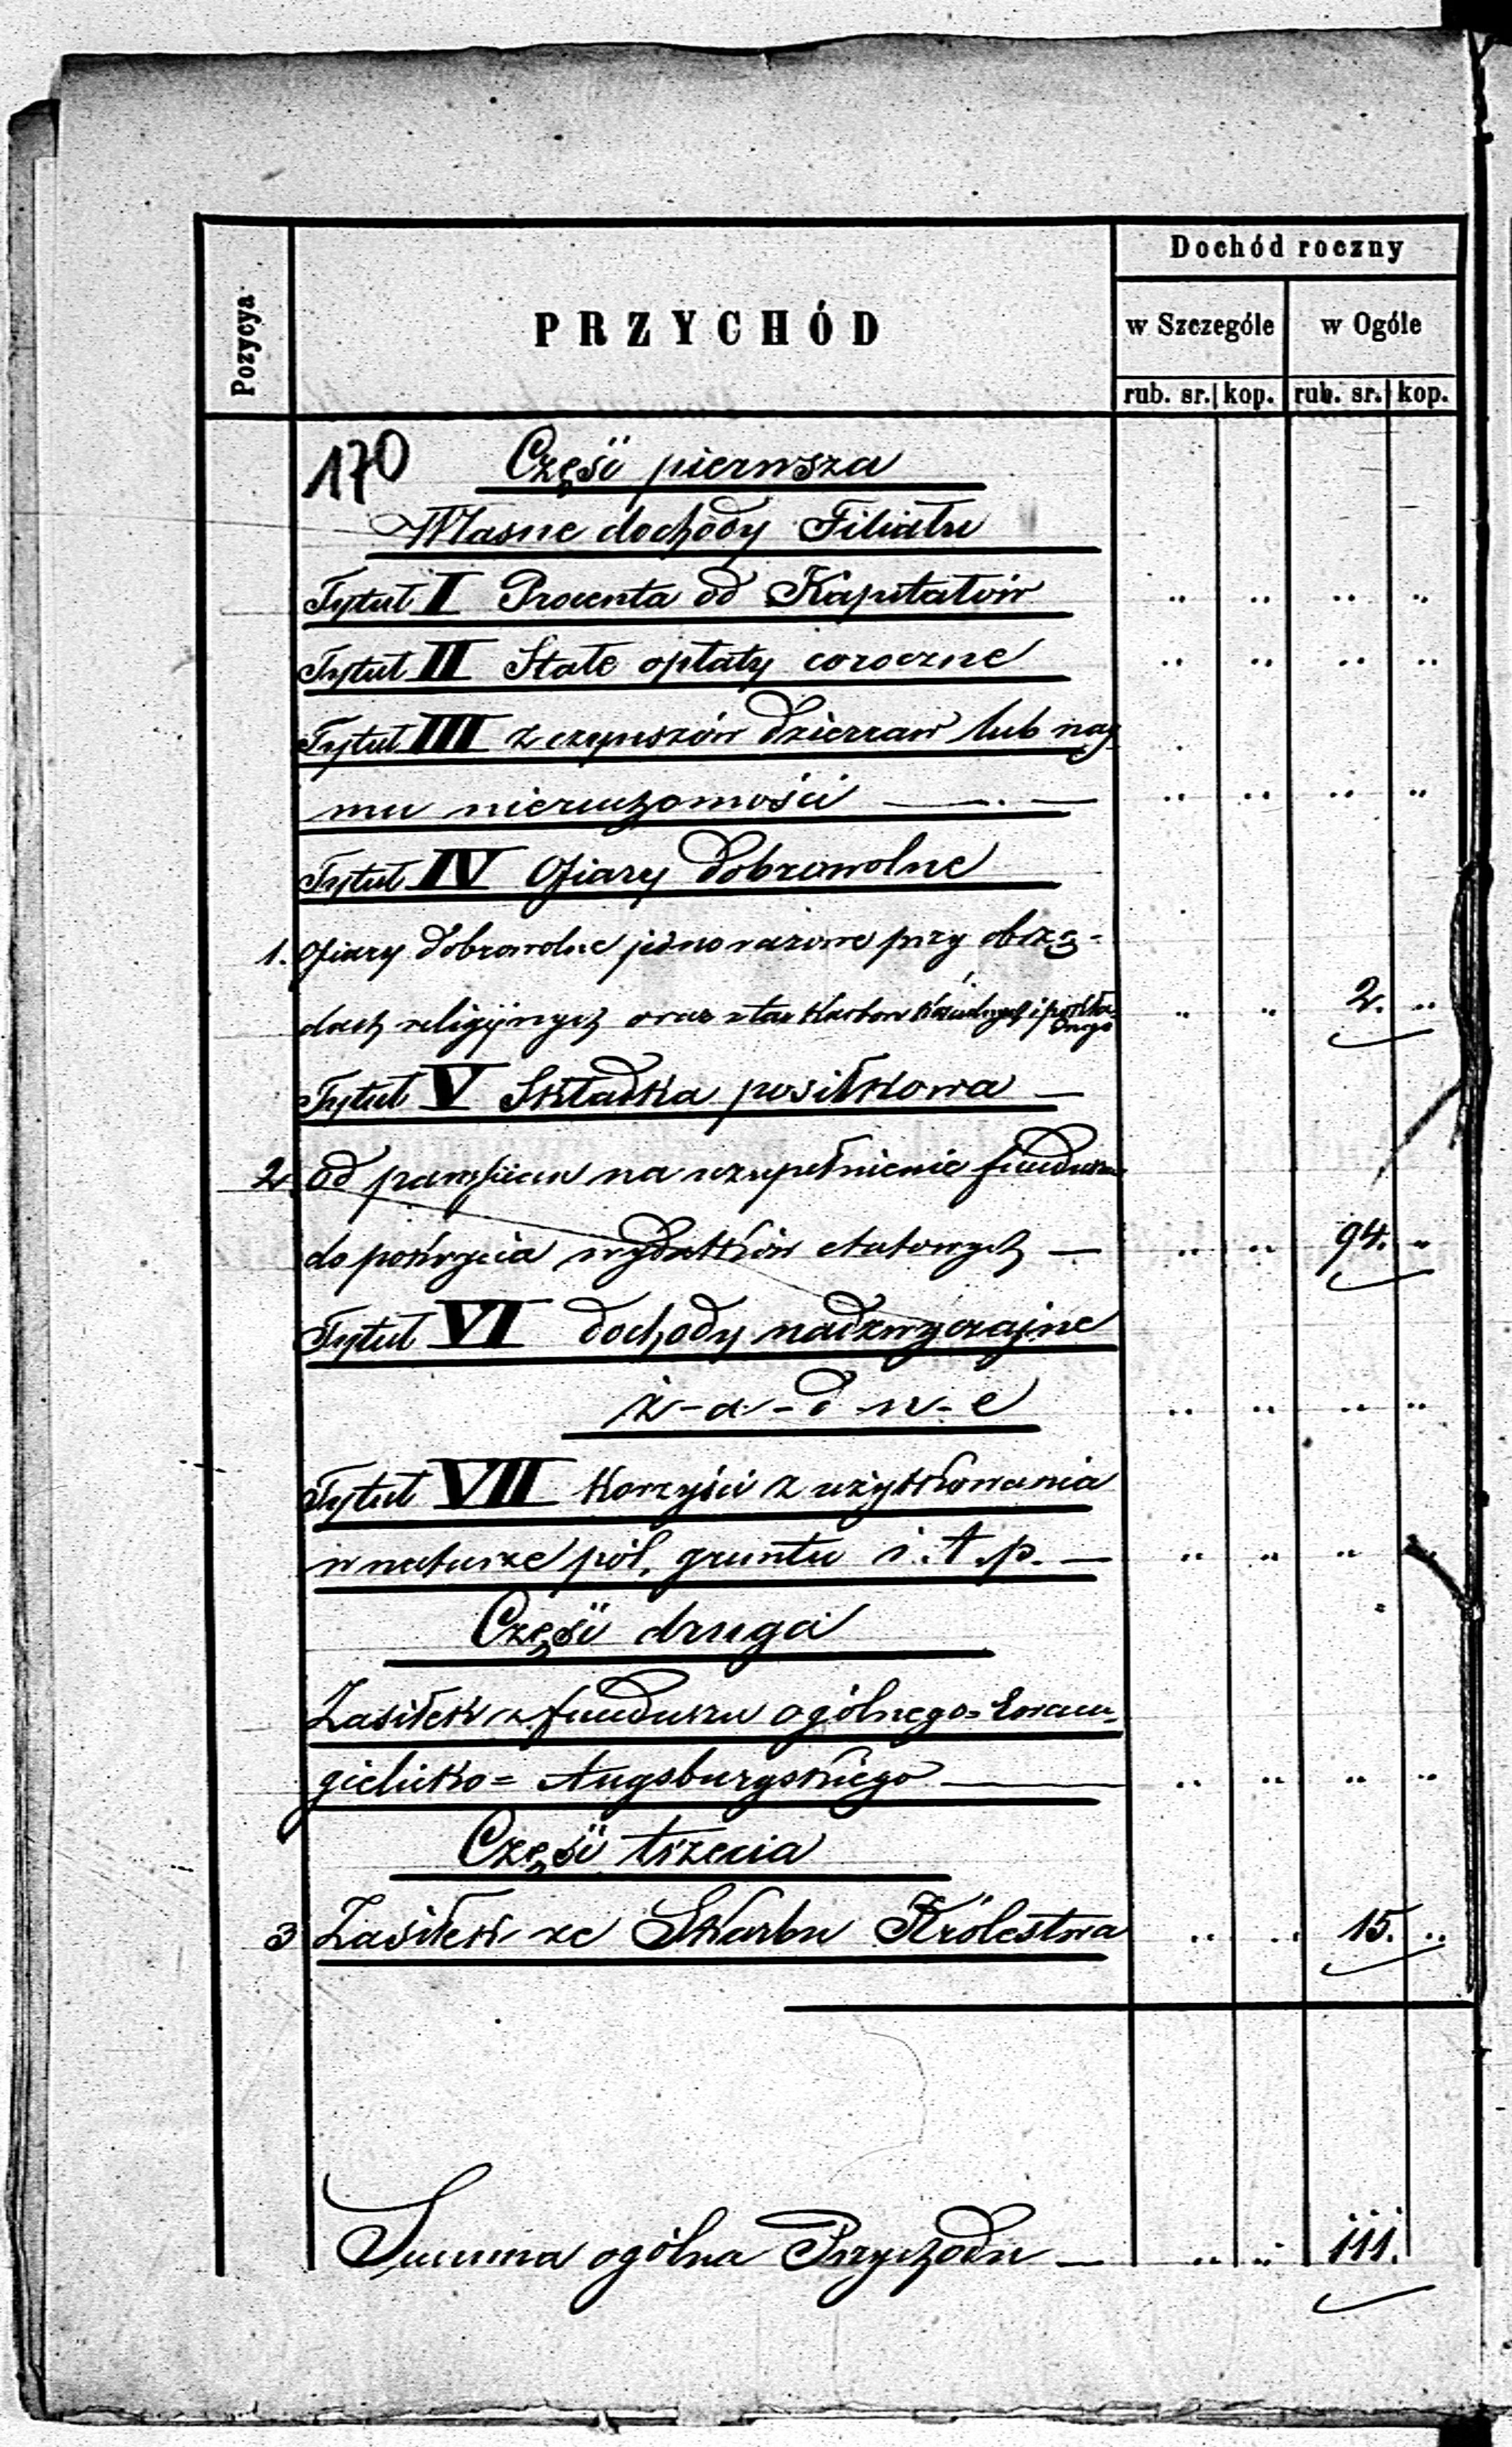 Dochód roczny
Pozycya
PRZYCHÓD
w Szczególe w Ogóle
rub. sr. kop. rub. sr. kop.
170 Część pierwsza
Własne dochody Filiału
Tytuł I Procenta od Kapitałów
Tytuł II Stałe opłaty coroczne
Tytuł III z czynszów dzierżaw lub naj
mu nieruchomości
Tytuł IV Ofiary dobrowolne
1. Ofiary dobrowolne jednorazowe przy obrzę-
dach religijnych oraz z tac 2. ..
Tytuł V Składka posiłkowa —
2. Od parafian na uzupełnienie funduszu
do pokrycia wydatków etatowych — 94. ..
Tytuł VI dochody nadzwyczajne
ż-a-d-n-e
Tytuł VII Korzyści z użytkowania
w naturze pól, gruntu i.t.p. —
Część druga
Zasiłek z funduszu ogólnego=Ewan-
gielicko=Augsburgskiego —
Część trzecia
3 Zasiłek ze Skarbu Królestwa 15. ..
Summa ogólna Przychodu — 111.